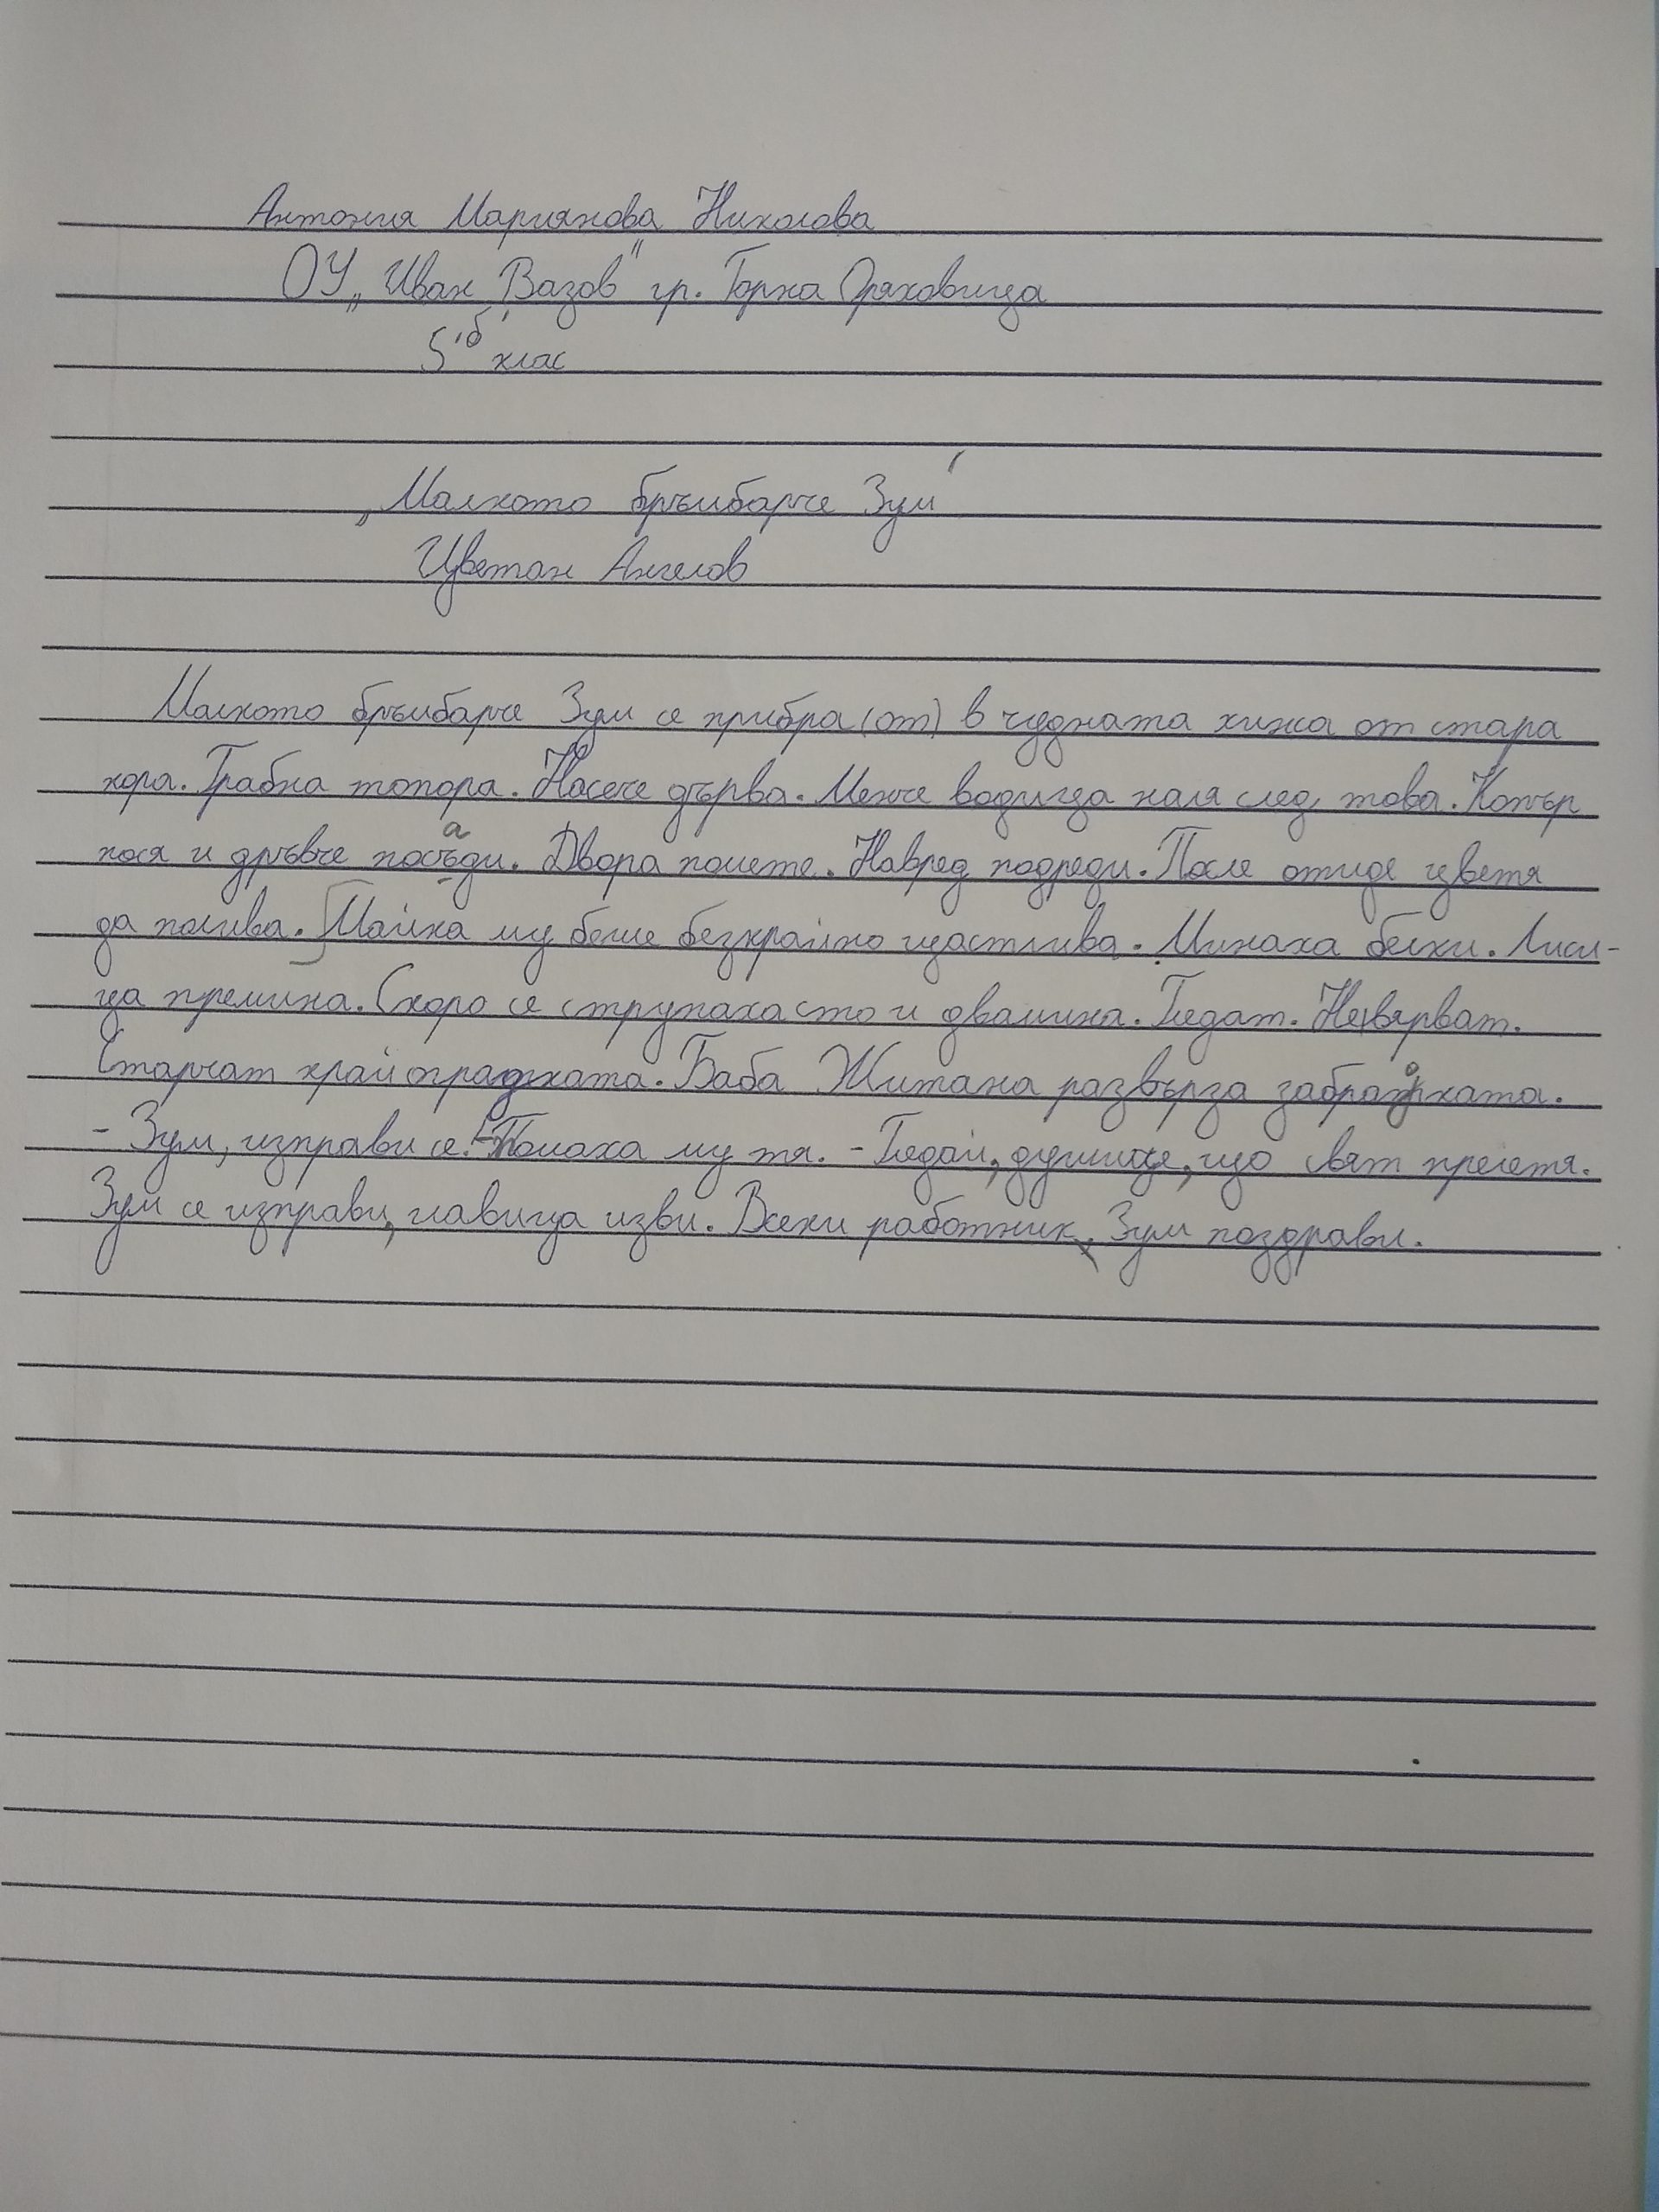 Антония Мариянова Николова
ОУ „Иван Вазов" гр. Горна Оряховица
5 'б' клас
„Малкото бръмбарче Зум"
Цветан Ангелов
Малкото бръмбарче Зум се прибра (от) в чудната хижа от стара
кора. Грабна топора. Насече дърва. Менче водица наля след това. Копър
нося и дръвче посади. Двора помете. Навред подреди. После отиде цветя
да полива. Майка му беше безкрайно щастлива. Минаха белки. Лиси-
ца премина. Скоро се струпаха сто и двамина. Гледат. Не вярват.
Стърчат край оградката. Баба Житана развърза забрадката.
- Зум, изправи се! - Помаха му тя. - Гледай, душице, що свят прелетя.
Зум се изправи, главица изви. Всеки работник, Зум поздрави.